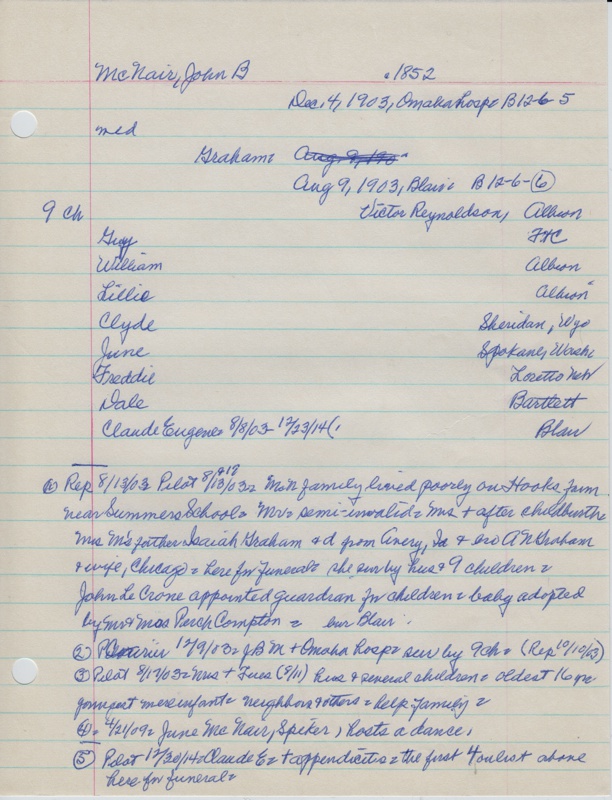 McNair, John B c1852
Dec. 4, 1903, Omaha hosp= B12-6-5
md
Graham= Aug. 9, 190
Aug 9, 1903, Blair= B 12-6-(6)
9 ch Victor Reynoldson, Albion
Guy FtC
William Albion
Lillie Albion
Clyde Sheridan, Wyo
June Spokane, Wash=
Freddie Loretto Neb
Dale Bartlett
Claude Eugene= 8/8/03= 12/23/14 Blair
① Rep 8/13/03= Pilot 8/13/03= McN family lived poorly on Hooks farm
near Summers School= Mr= semi-invalid= Mrs + after childbirth=
Mrs M's father Isaiah Graham + d from Avery, Ia + bro A N Graham
+ wife, Chicago= here for funeral= she sur by hus + 9 children=
John Le Crone appointed guardian for children= baby adopted
by Mr + Mrs Perch Compton= bur Blair
② Courier 12/9/03= JBM + Omaha hosp= sur by 9 ch= (Rep 10/10/03)
③ Pilot 8/17/03= Mrs + Tues (8/11) hus + several children= oldest 16 yr
youngest mere infant= neighbors + others= help family=
④= 4/21/09= June McNair, Spiker, hosts a dance,
⑤ Pilot 12/30/14= Claude E= + appendicitis= the first 4 on list above
here for funeral=